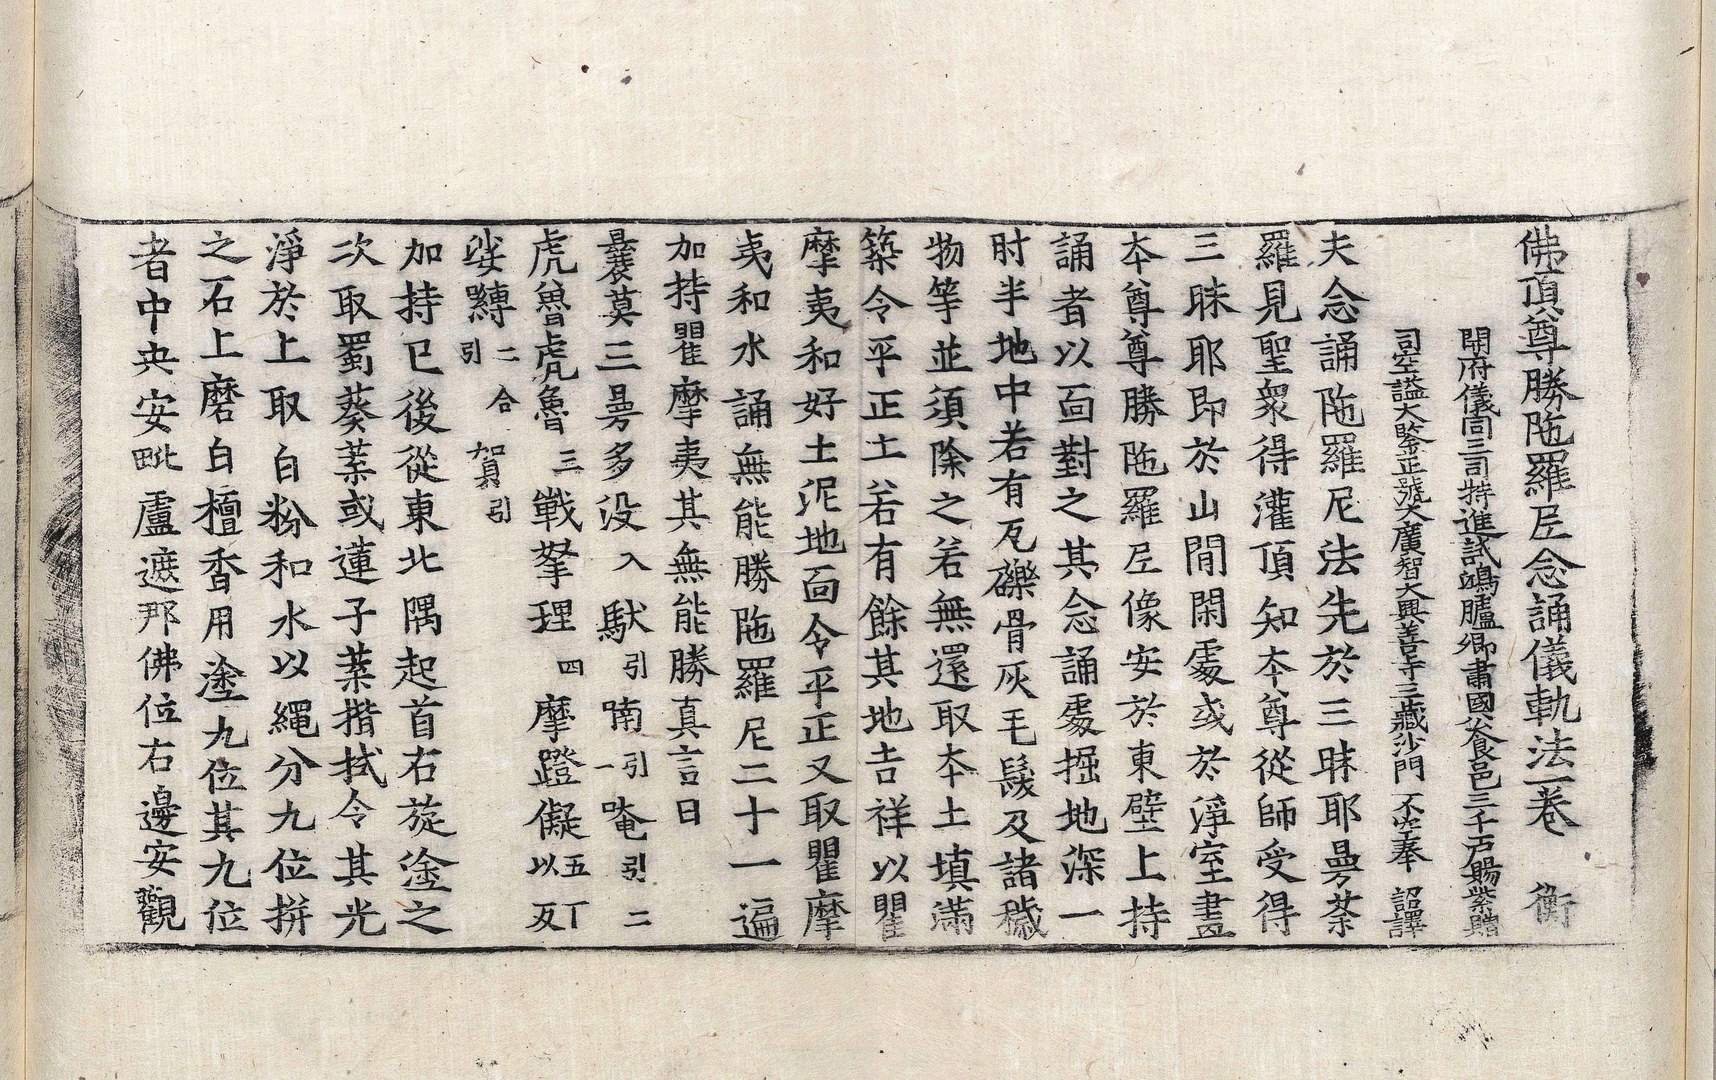 佛頂尊勝陁羅尼念誦儀軌法一卷　衡
開府儀同三司特進試鴻臚卿肅國公食邑三千戶賜紫贈
司空謚大鑒正號大廣智大興善寺三藏沙門不空奉　詔譯
夫念誦陁羅尼法先於三昧耶曼荼
羅見聖衆得灌頂知本尊從師受得
三昧耶即於山間閑處或於淨室畫
本尊尊勝陁羅尼像安於東壁上持
誦者以面對之其念誦處掘地深一
肘半地中若有瓦礫骨灰毛髮及諸穢
物等並須除之若無還取本土填滿
築令平正土若有餘其地吉祥以瞿
摩夷和好土泥地面令平正又取瞿摩
夷和水誦無能勝陁羅尼二十一遍
加持瞿摩夷其無能勝真言曰
曩莫三曼多没入馱引喃引一唵引二
虎魯虎魯三戰拏理四摩蹬儗五丁以反
娑嚩二合引賀引
加持已後從東北隅起首右旋塗之
次取蜀葵葉或蓮子葉揩拭令其光
淨於上取白粉和水以繩分九位拼
之石上磨白檀香用塗九位其九位
者中央安毗盧遮那佛位右邊安觀